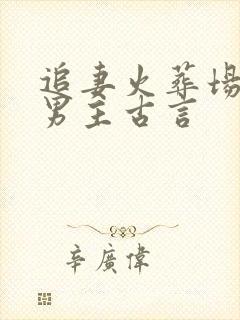 追妻火葬场
男主古言
辛廣偉